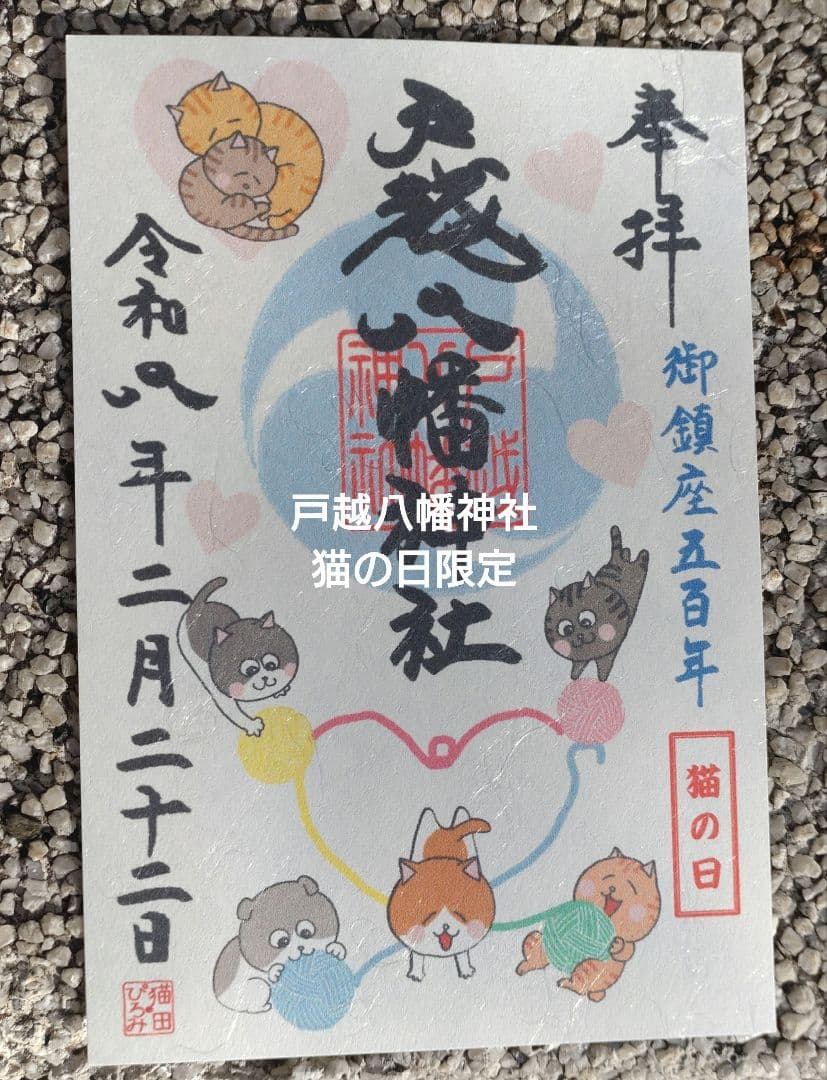 奉拝
御鎮座五百年
猫の日
戸越八幡神社
戸越八幡神社
戸越八幡神社
猫の日限定
令和八年二月二十二日
猫田
ぴろみ